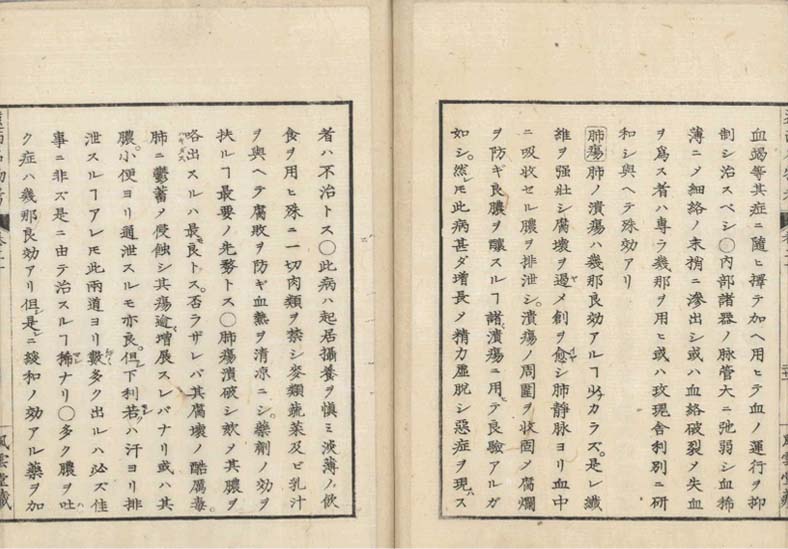 血竭等其症ニ隨ヒ擇テ加ヘ用ヒテ血ノ運行ヲ抑
制シ治スベシ○内部諸器ノ脉管大ニ弛弱シ血稀
薄ニ〆細絡ノ末梢ニ滲出シ或ハ血絡破裂〆失血
ヲ爲ス者ハ專ラ幾那ヲ用ヒ或ハ玫瑰舎利別ニ研
和シ與ヘテ殊効アリ
肺瘍 肺ノ潰瘍ハ幾那良効アルヿ少カラズ。是レ纖
維ヲ强壯シ腐壞ヲ遏メ創ヲ愈シ肺静脉ヨリ血中
ニ吸收セル膿ヲ排泄シ。潰瘍ノ周圍ヲ收固〆腐爛
ヲ防ギ良膿ヲ釀スルヿ諸潰瘍ニ用テ良驗アルガ
如シ。然レ𪜈此病甚ダ増長〆精力虚脱シ惡症ヲ現ス
者ハ不治トス○此病ハ起居攝養ヲ愼ミ淡薄ノ飲
食ヲ用ヒ殊ニ一切肉類ヲ禁シ麥類蔬菜及ビ乳汁
ヲ與ヘテ腐敗ヲ防ギ血熱ヲ清凉ニシ。藥劑ノ効ヲ
扶ルヿ最要ノ先務トス○肺瘍潰破シ欬〆其膿ヲ
咯出スルハ最良トス。否ラザレバ其腐壞ノ酷厲毒。
肺ニ鬱蓄〆侵蝕シ其瘍逾増展スレバナリ或ハ其
膿。小便ヨリ通泄スルモ亦良。但下利若ハ汗ヨリ排
泄スルヿアレ𪜈此兩道ヨリ數多ク出ルハ必ズ佳
事ニ非ズ是ニ由テ治スルヿ稀ナリ○多ク膿ヲ吐
ク症ハ幾那良効アリ但是ニ緩和ノ効アル藥ヲ加
風雲堂藏
風雲堂藏